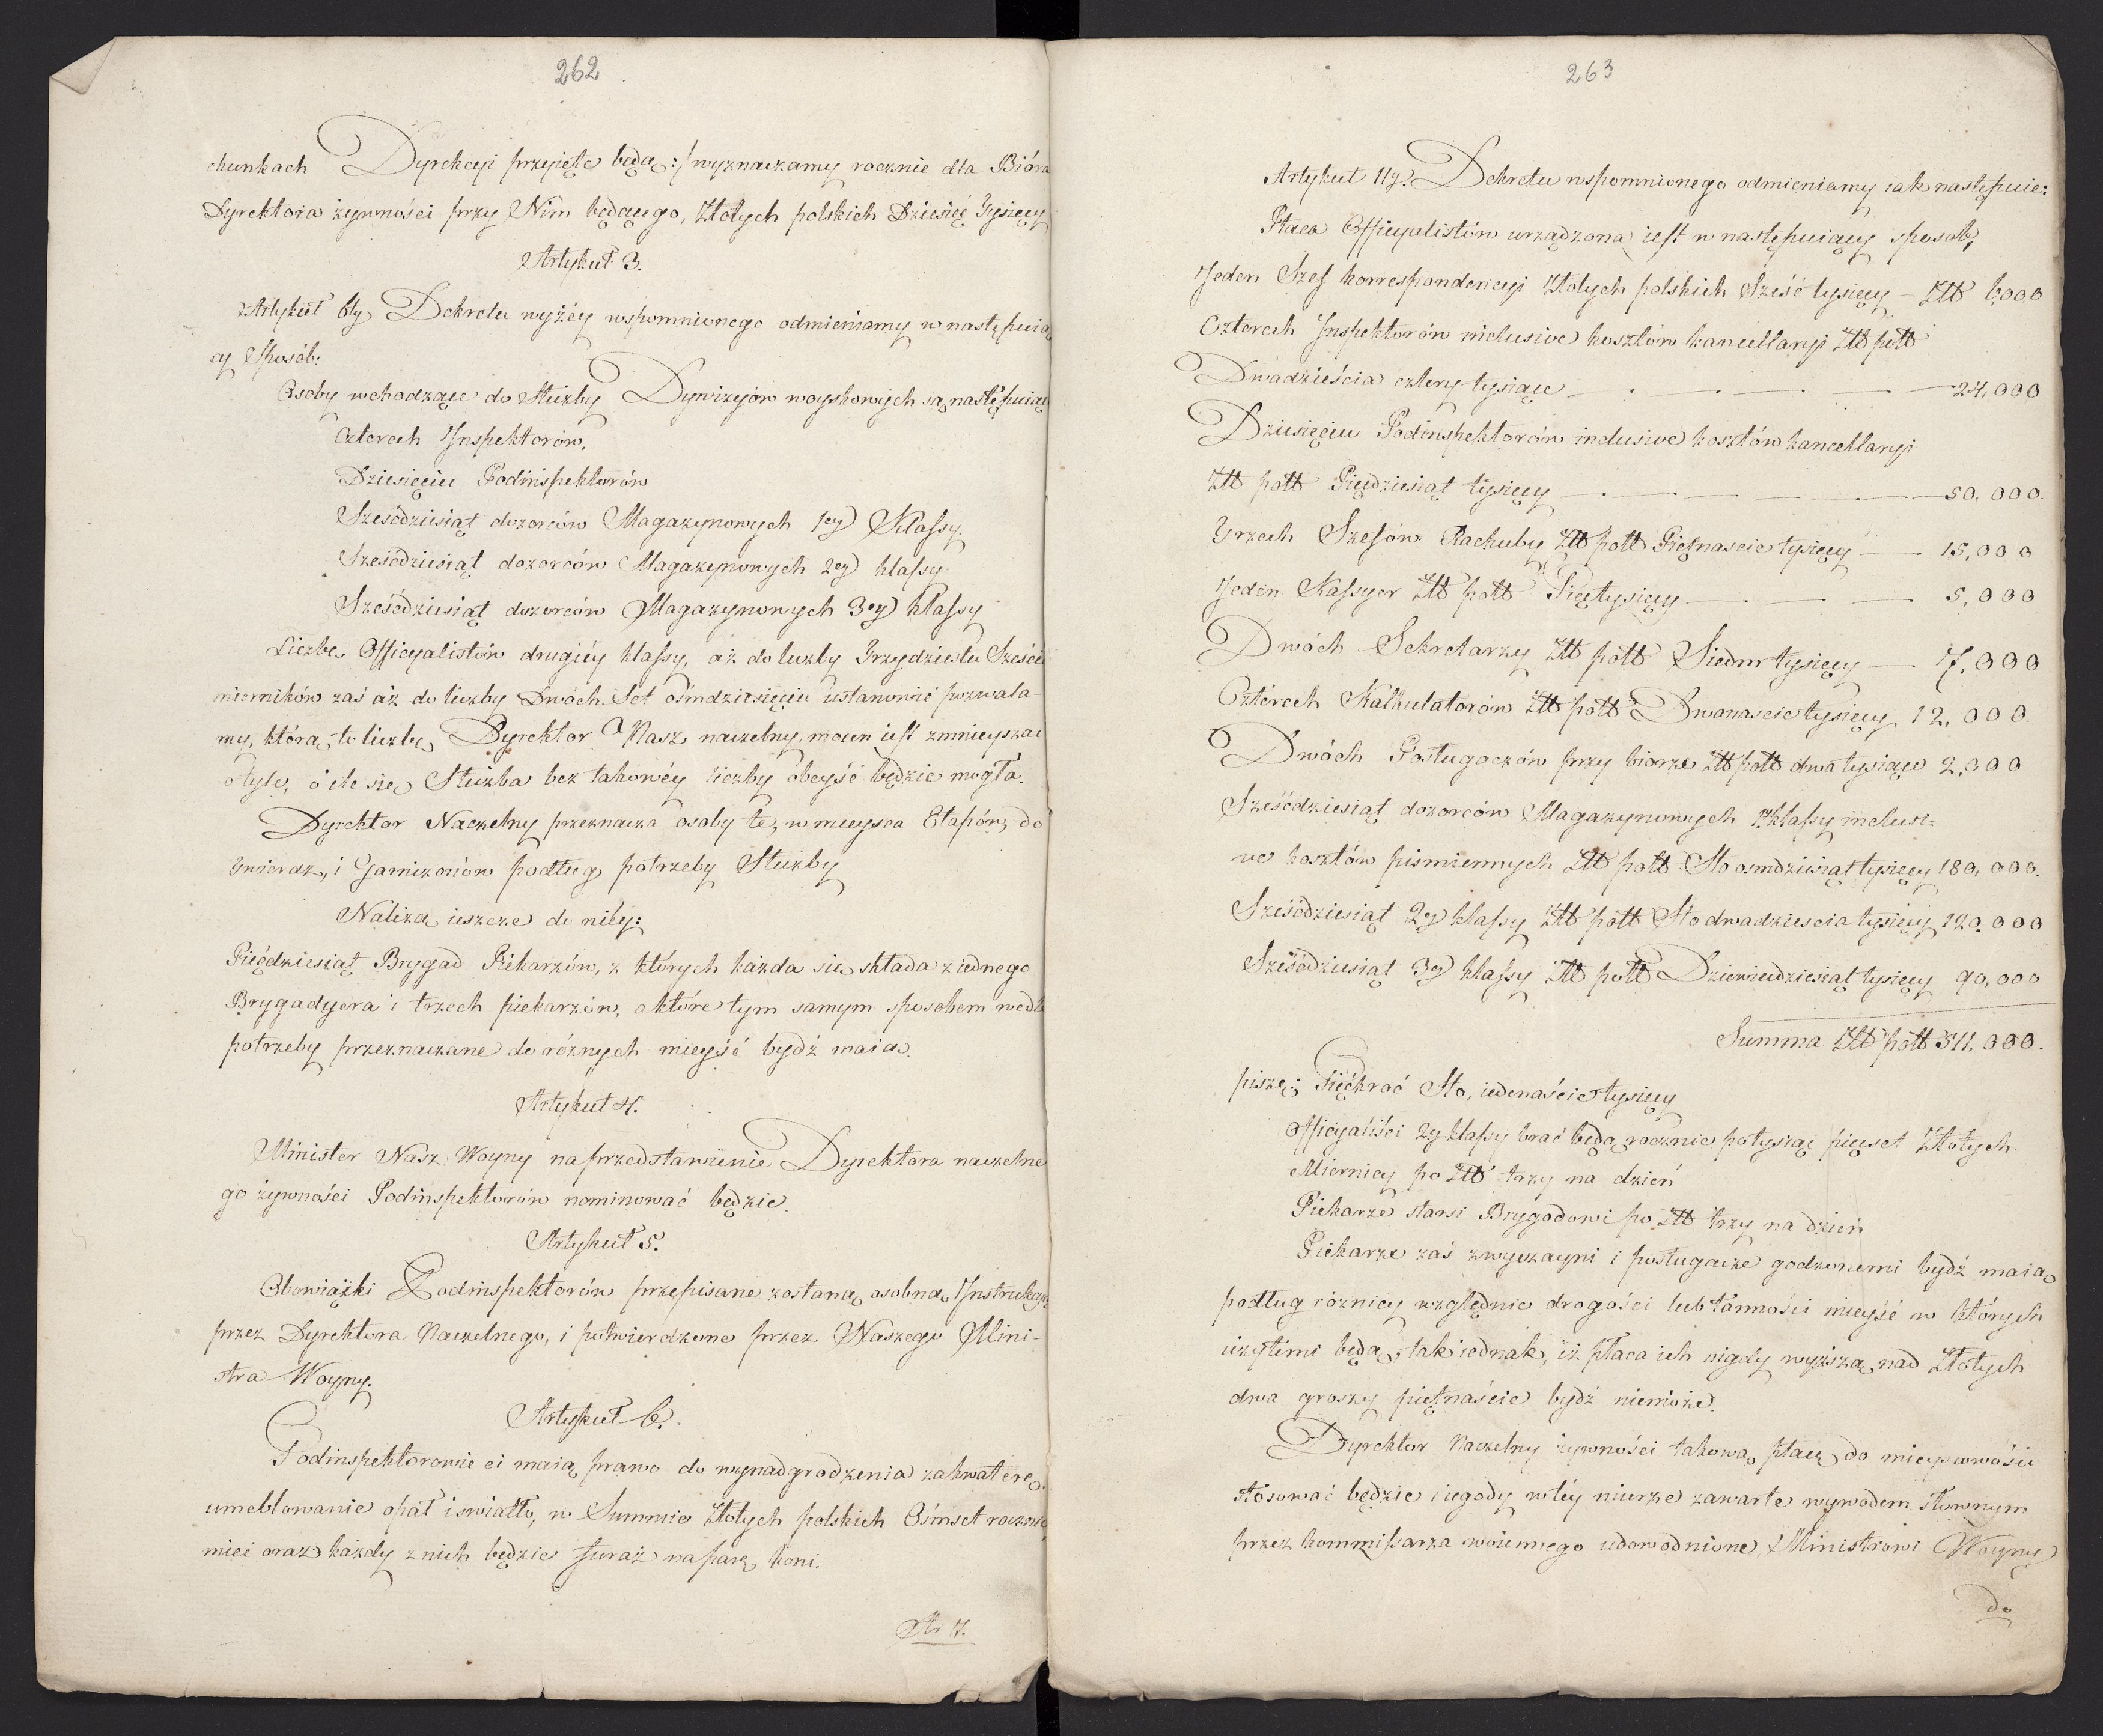 262
chunkach Dyrekcyi przyięte będą:/ wyznaczamy rocznie dla Bióra
Dyrektora żywności przy Nim będącego, Złotych polskich Dziesięć Tysięcy
Artykuł 3.
Artykuł 6ty Dekretu wyżéy wspomnionego odmieniamy w następuią
cy Sposób:
Osoby wchodzące do Służby Dywizyiów woyskowych są następuiąc
Czterech Inspektorów,
Dziesięciu Podinspektorów
Sześćdziesiąt dozorców Magazynowych 1ey Klassy
Sześćdziesiąt dozorców Magazynowych 2ey klassy
Sześćdziesiąt dozorców Magazynowych 3ey klassy
Liczbę Officyalistów drugiéy klassy, aż do liczby Trzydziestu Sześciu
mierników zaś aż do liczby Dwóch Set ośmdziesięciu ustanowić pozwala-
my, którą to liczbę, Dyrektor Nasz naczelny, mocen iest zmnieyszać
otyle, o ile się Służba bez takowéy liczby obeyść będzie mogła.
Dyrektor Naczelny przeznacza osoby te, w mieysca Etapów, do
Twierdz, i Garnizonów podług potrzeby Służby
Należą ieszcze do niéy:
Pięćdziesiąt Brygad Piekarzów, z których każda się składa z iednego
Brygadyera i trzech piekarzów, a które tym samym sposobem wedle
potrzeby przeznaczane do różnych mieyść bydź maią.
Artykuł 4.
Minister Nasz Woyny na przedstawienie Dyrektora naczelne
go żywności Podinspektorów nominować będzie.
Artykuł 5.
Obowiązki Podinspektorów przepisane zostaną osobną Instrukcyą
przez Dyrektora Naczelnego, i potwierdzone przez Naszego Mini-
stra Woyny.
Artykuł 6.
Podinspektorowie ci maią prawo do wynadgrodzenia za kwaterę
umeblowanie opał i światło, w Summie Złotych polskich Ośmset rocznie
mieć oraz każdy z nich będzie furaż na parę koni.
Ar 7.
263
Artykuł 11y. Dekretu wspomnionego odmieniamy iak następuie:
Płaca Officyalistów urządzona iest w następuiący sposób,
Jeden Szef korrespondencyi Złotych polskich Sześć tysięcy — Złł 6,000
Czterech Inspektorów inclusive kosztów kancellaryi Złł poll
Dwadzieścia cztery tysiące — 24,000
Dziesięciu Podinspektorów inclusive kosztów kancellaryi
Złł poll Pięćdziesiąt tysięcy — 50,000.
Trzech Szefów Rachuby Złł poll Piętnaście tysięcy — 15,000
Jeden Kassyer Złł poll Pięć tysięcy — 5,000
Dwóch Sekretarzy Złł poll Siedm tysięcy — 7,000
Czterech Kalkulatorów Złł poll Dwanaście tysięcy 12,000.
Dwóch Posługaczów przy biorze Złł poll dwa tysiące 2,000
Sześćdziesiąt dozorców Magazynowych 1 klassy inclusi-
ve kosztów piśmiennych Złł poll Sto osmdziesiąt tysięcy 180,000.
Sześćdziesiąt 2ey klassy Złł poll Sto dwadzieścia tysięcy 120,000
Sześćdziesiąt 3ey klassy Złł poll Dziewiędziesiąt tysięcy 90,000
Summa Złł poll 511,000.
piszę: Pięćkroć Sto, iedenaście tysięcy
Officyaliści 2ey klassy brać będą rocznie po tysiąc pięcset Złotych
Miernicy po Złł trzy na dzień
Piekarze starsi Brygadowi po Złł trzy na dzień
Piekarze zaś zwyczayni i posługacze godzonemi bydź maią
podług różnicy względnie drogości lub tanności mieyść w których
użytemi będą, tak iednak, iż płaca ich nigdy wyższą nad Złotych
dwa groszy piętnaście bydź niemoże.
Dyrektor Naczelny żywności takową płacę do mieyscowości
stosować będzie i ugody w téy mierze zawarte wywodem słownym
przez Kommissarza woiennego udowodnione, Ministrowi Woyny
do